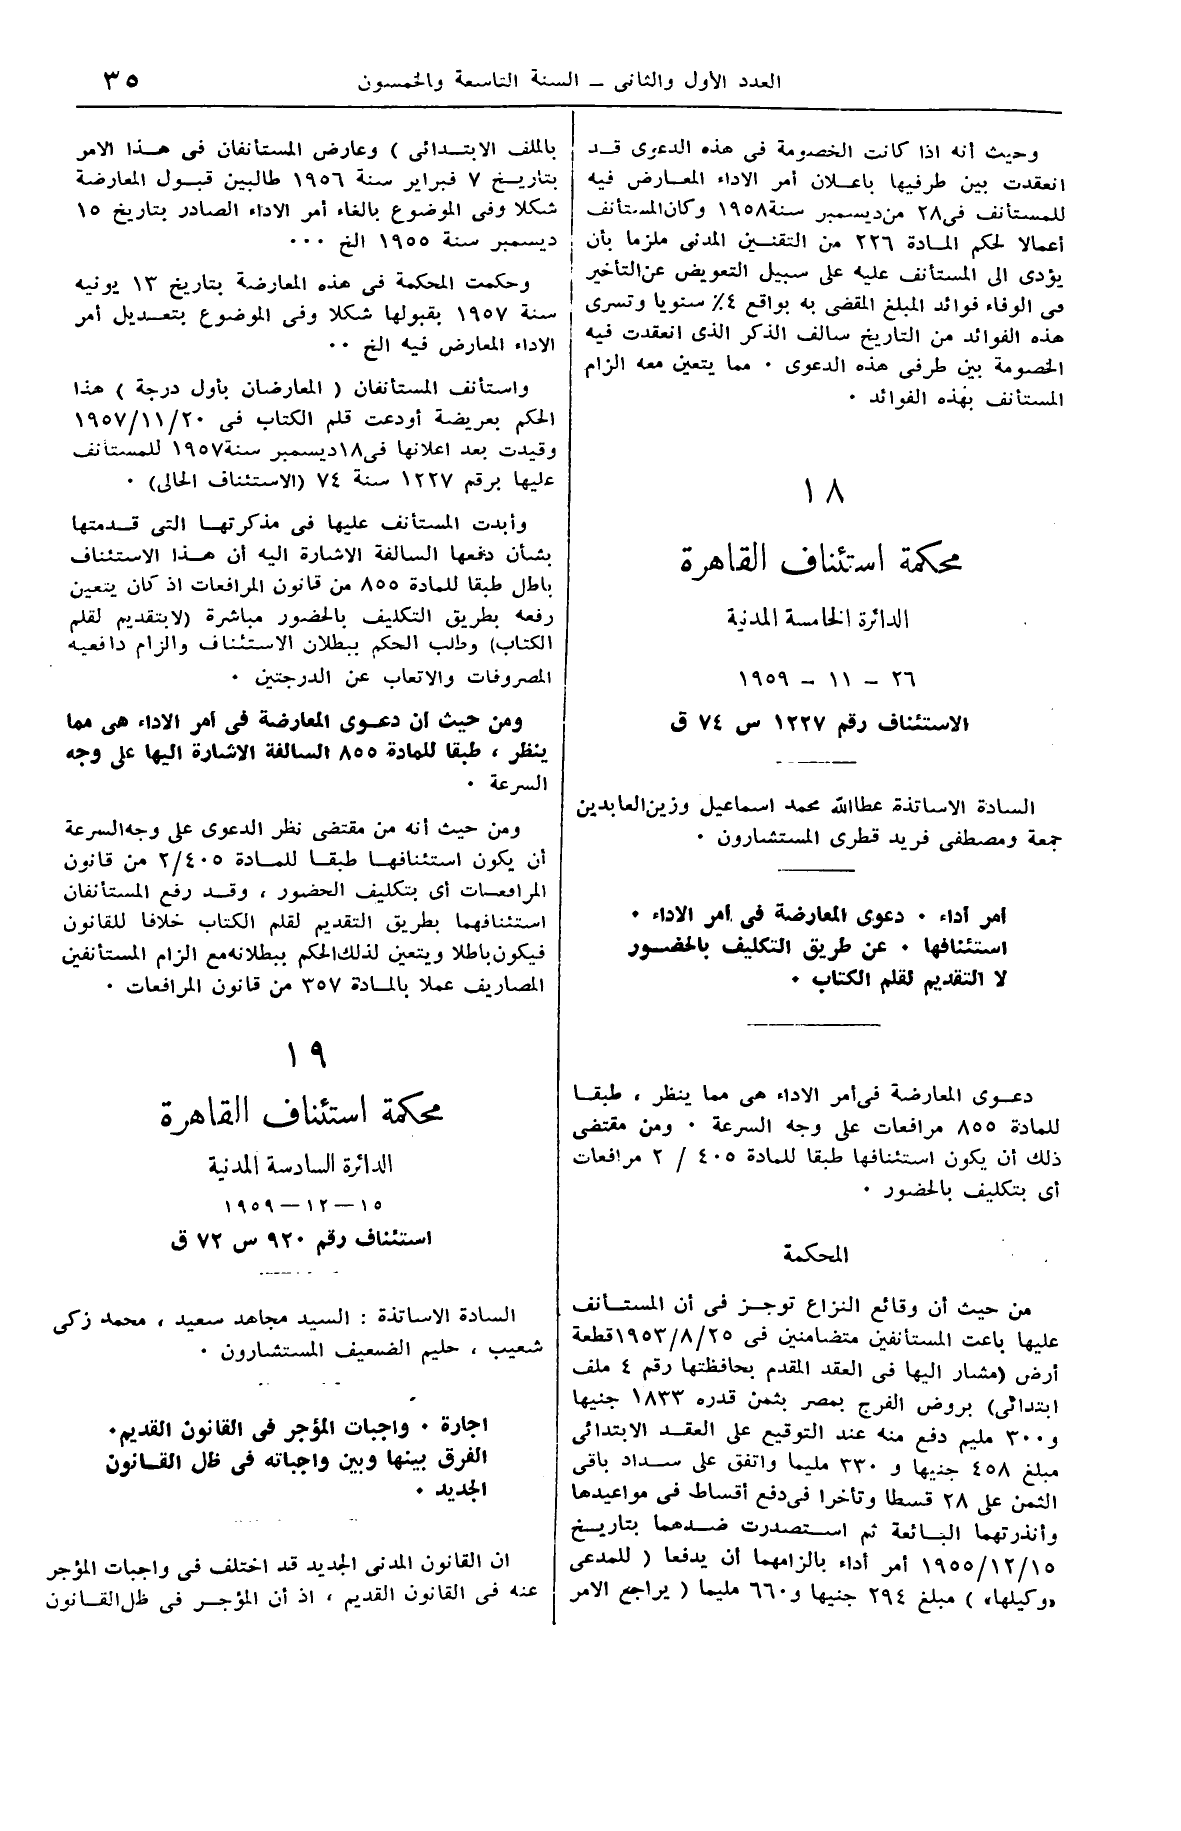 العدد الأول والثانى – السنة التاسعة والخمسون
٣٥
وحيث أنه اذا كانت الخصومة فى هذه الدعوى قـد
انعقدت بين طرفيها باعـلان أمر الاداء المعـارض فيه
للمستأنف فى٢٨ من ديسمبر سنة١٩٥٨ وكان المستأنف
أعمالا لحكم المـادة ٢٢٦ من التقنـين المدنى ملزما بأن
يؤدى الى المستأنف عليه على سبيل التعويض عن التأخير
فى الوفاء فوائد المبلغ المقضى به بواقع ٤٪ سنويا وتسرى
هذه الفوائد من التاريخ سالف الذكر الذى انعقدت فيه
الخصومة بين طرفى هذه الدعوى ٠ مما يتعين معه الزام
المستأنف بهذه الفوائد ٠
١٨
محكمة استئناف القاهرة
الدائرة الخامسة المدنية
٢٦ – ١١ – ١٩٥٩
الاستئناف رقم ١٢٢٧ س ٧٤ ق
السادة الاساتذة عطاالله محمد اسماعيل وزين العابدين
جمعة ومصطفى فريد قطرى المستشارون ٠
أمر أداء ٠ دعوى المعارضة فى أمر الاداء ٠
استئنافها ٠ عن طريق التكليف بالحضـور
لا التقديم لقلم الكتاب ٠
دعـوى المعارضة فى أمر الاداء هى مما ينظر ، طبقـا
للمادة ٨٥٥ مرافعات على وجه السرعة ٠ ومن مقتضى
ذلك أن يكون استئنافها طبقا للمادة ٤٠٥ / ٢ مرافعات
أى بتكليف بالحضور ٠
المحكمة
من حيث أن وقائع النزاع توجـز فى أن المستـأنف
عليها باعت المستأنفين متضامنين فى ١٩٥٣/٨/٢٥قطعة
أرض (مشار اليها فى العقد المقدم بحافظتها رقم ٤ ملف
ابتدائى) بروض الفرج بمصر بثمن قدره ١٨٣٣ جنيها
و٣٠٠ مليم دفع منه عند التوقيع على العقـد الابتدائى
مبلغ ٤٥٨ جنيها و ٣٣٠ مليما واتفق على سـداد باقى
الثمن على ٢٨ قسطا وتأخرا فى دفع أقساط فى مواعيدها
وأنذرتهما البـائعة ثم استصدرت ضـدهما بتاريـخ
١٩٥٥/١٢/١٥ أمر أداء بالزامهما أن يدفعا ( للمدعى
«وكيلها» ) مبلغ ٢٩٤ جنيها و٦٦٠ مليما ( يراجع الامر
بالملف الابتـدائى ) وعارض المستأنفان فى هـذا الامر
بتاريـخ ٧ فبراير سنة ١٩٥٦ طالبين قبـول المعارضة
شكلا وفى الموضوع بالغاء أمر الاداء الصادر بتاريخ ١٥
ديسمبر سنة ١٩٥٥ الخ ٠٠٠
وحكمت المحكمة فى هذه المعارضة بتاريخ ١٣ يونيه
سنة ١٩٥٧ بقبولها شكلا وفى الموضوع بتعـديل أمر
الاداء المعارض فيه الخ ٠٠
واستأنف المستأنفان ( المعارضان بأول درجة ) هذا
الحكم بعريضة أودعت قلم الكتاب فى ١٩٥٧/١١/٢٠
وقيدت بعد اعلانها فى١٨ديسمبر سنة١٩٥٧ للمستأنف
عليها برقم ١٢٢٧ سنة ٧٤ (الاستئناف الحالى) ٠
وأبدت المستأنف عليها فى مذكرتهـا التى قـدمتها
بشأن دفعها السالفة الاشارة اليه أن هـذا الاستئناف
باطل طبقا للمادة ٨٥٥ من قانون المرافعات اذ كان يتعين
رفعه بطريق التكليف بالحضور مباشرة (لا بتقديم لقلم
الكتاب) وطلب الحكم ببطلان الاستئناف والزام دافعيه
المصروفات والاتعاب عن الدرجتين ٠
ومن حيث أن دعـوى المعارضة فى أمر الاداء هى مما
ينظر ، طبقا للمادة ٨٥٥ السالفة الاشارة اليها على وجه
السرعة ٠
ومن حيث أنه من مقتضى نظر الدعوى على وجه السرعة
أن يكون استئنافهـا طبقـا للمـادة ٢/٤٠٥ من قانون
المرافعـات أى بتكليف الحضور ، وقـد رفع المستأنفان
استئنافهما بطريق التقديم لقلم الكتاب خلافا للقانون
فيكون باطلا ويتعين لذلك الحكم ببطلانه مع الزام المستأنفين
المصاريف عملا بالمـادة ٣٥٧ من قانون المرافعات ٠
١٩
محكمة استئناف القاهرة
الدائرة السادسة المدنية
١٥ – ١٢ – ١٩٥٩
استئناف رقم ٩٢٠ س ٧٢ ق
السادة الاساتذة : السيد مجاهد سعيد ، محمد زكى
شعيب ، حليم الضعيف المستشارون ٠
اجارة ٠ واجبات المؤجر فى القانون القديم٠
الفرق بينها وبين واجباته فى ظل القـانون
الجديد ٠
ان القانون المدنى الجديد قد اختلف فى واجبات المؤجر
عنه فى القانون القديم ، اذ أن المؤجـر فى ظل القـانون